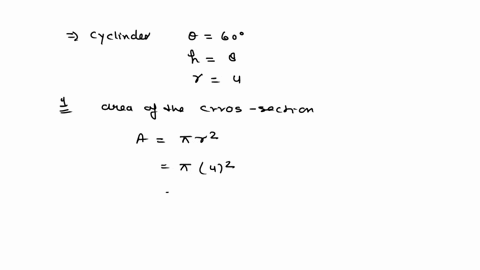 ⇒ Cyclinder θ = 60°
h = 8
r = 4
1 area of the crros-section
A = π r²
= π (4)²